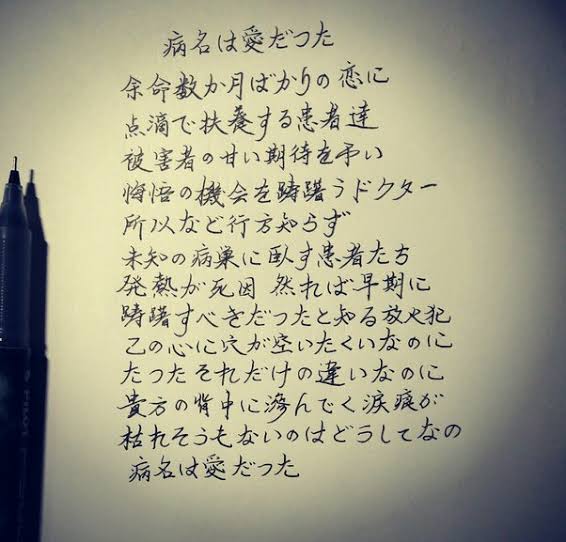 病名は愛だった
余命数か月ばかりの恋に
点滴で扶養する患者達
被害者の甘い期待を予い
悔悟の機会を躊躇うドクター
所以など行方知らず
未知の病巣に臥す患者たち
発熱が死因 然れば早期に
躊躇すべきだったと知る放火犯
乙の心に穴が空いたくいなのに
たったそれだけの違いなのに
貴方の背中に滲んでく涙痕が
枯れそうもないのはどうしてなの
病名は愛だった
PILOT